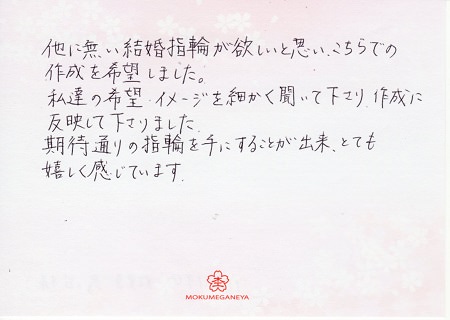 他に無い結婚指輪が欲しいと思い、こちらでの
作成を希望しました。
私達の希望・イメージを細かく聞いて下さり、作成に
反映して下さりました。
期待通りの指輪を手にすることが出来、とても
嬉しく感じています。
MOKUMEGANEYA